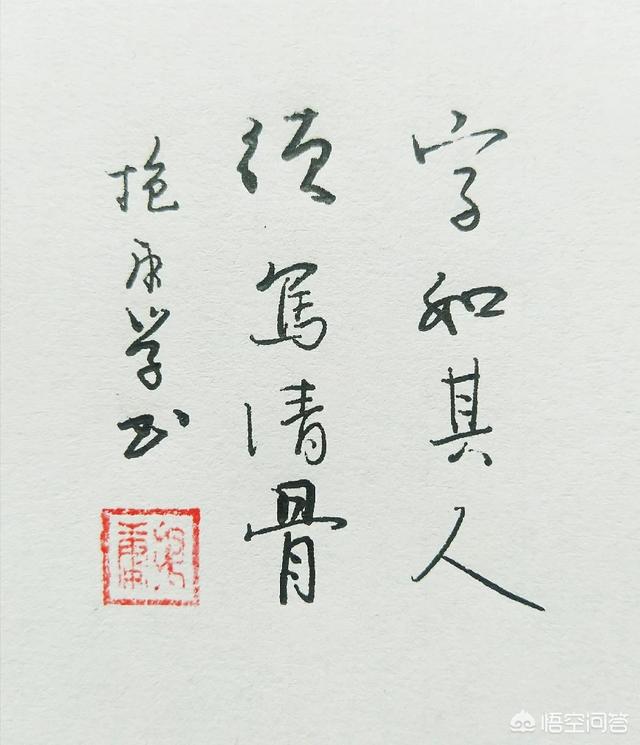 字如其人
须写清骨
抱康学书
悟空问答